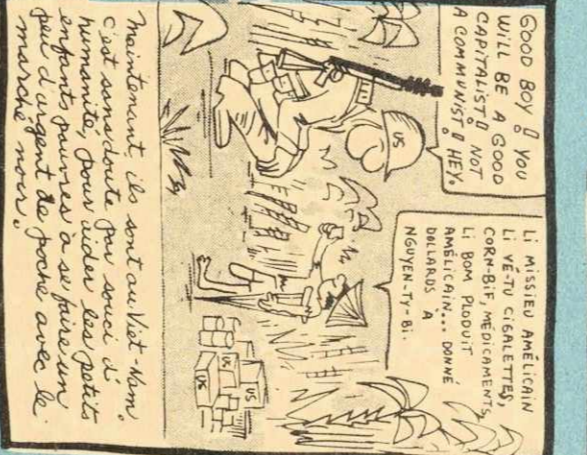 GOOD BOY! YOU
WILL BE A GOOD
CAPITALIST! NOT
A COMMUNIST! HEY.
LI MISSIEU AMÉLICAIN
LI VÉ-TU CIGALETTES,
CORN-BIF, MÉDICAMENTS,
LI BOM PLODUIT
AMÉLICAIN... DONNÉ
DOLLARDS À
NGUYEN-TY-BI.
US
US
US
US
Maintenant, ils sont au Viet-Nam.
c'est sans doute par souci d'
humanité, pour aider les petits
enfants pauvres à se faire un
peu d'argent de poche avec le
marché noir.